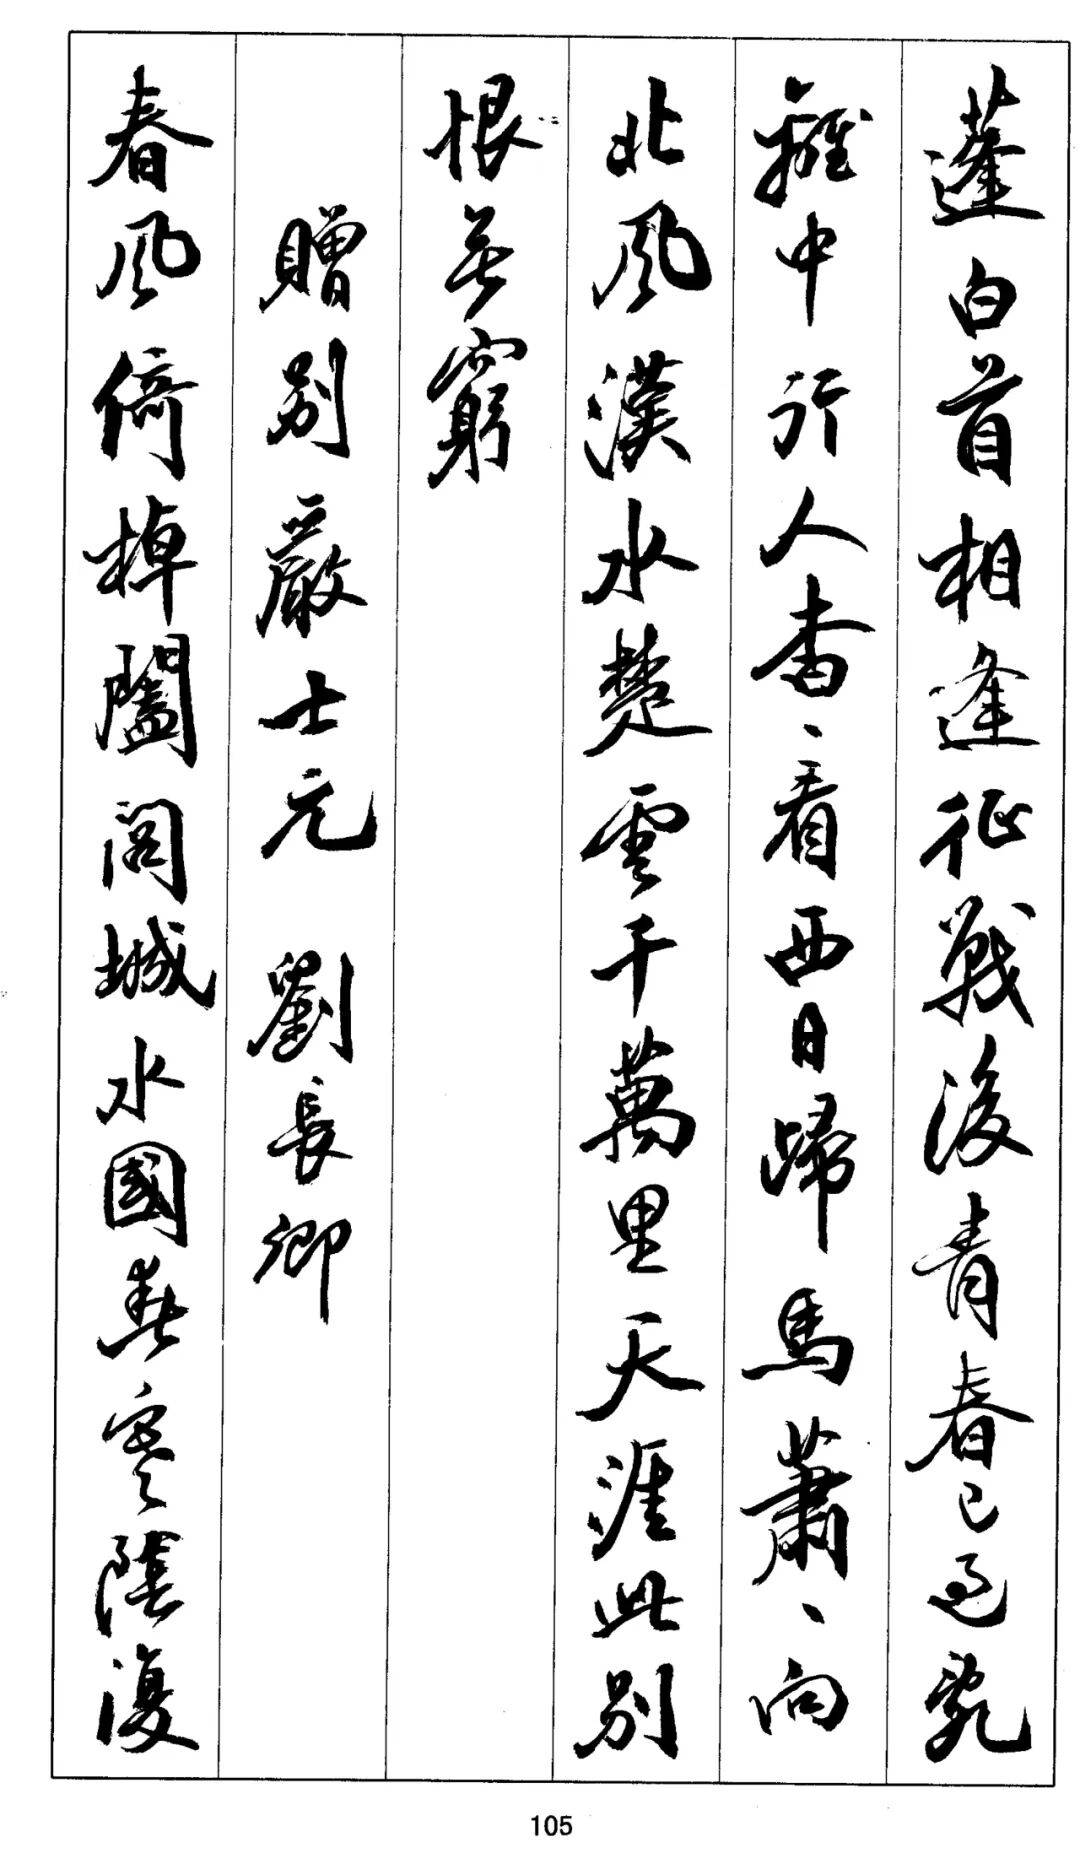 蓬白首相逢征戰後青春已過亂
離中行人杳、看西日歸馬蕭、向
北風漢水楚雲千萬里天涯此別
恨無窮
贈別嚴士元 劉長卿
春風倚棹闔閭城水國春寒陰復
105